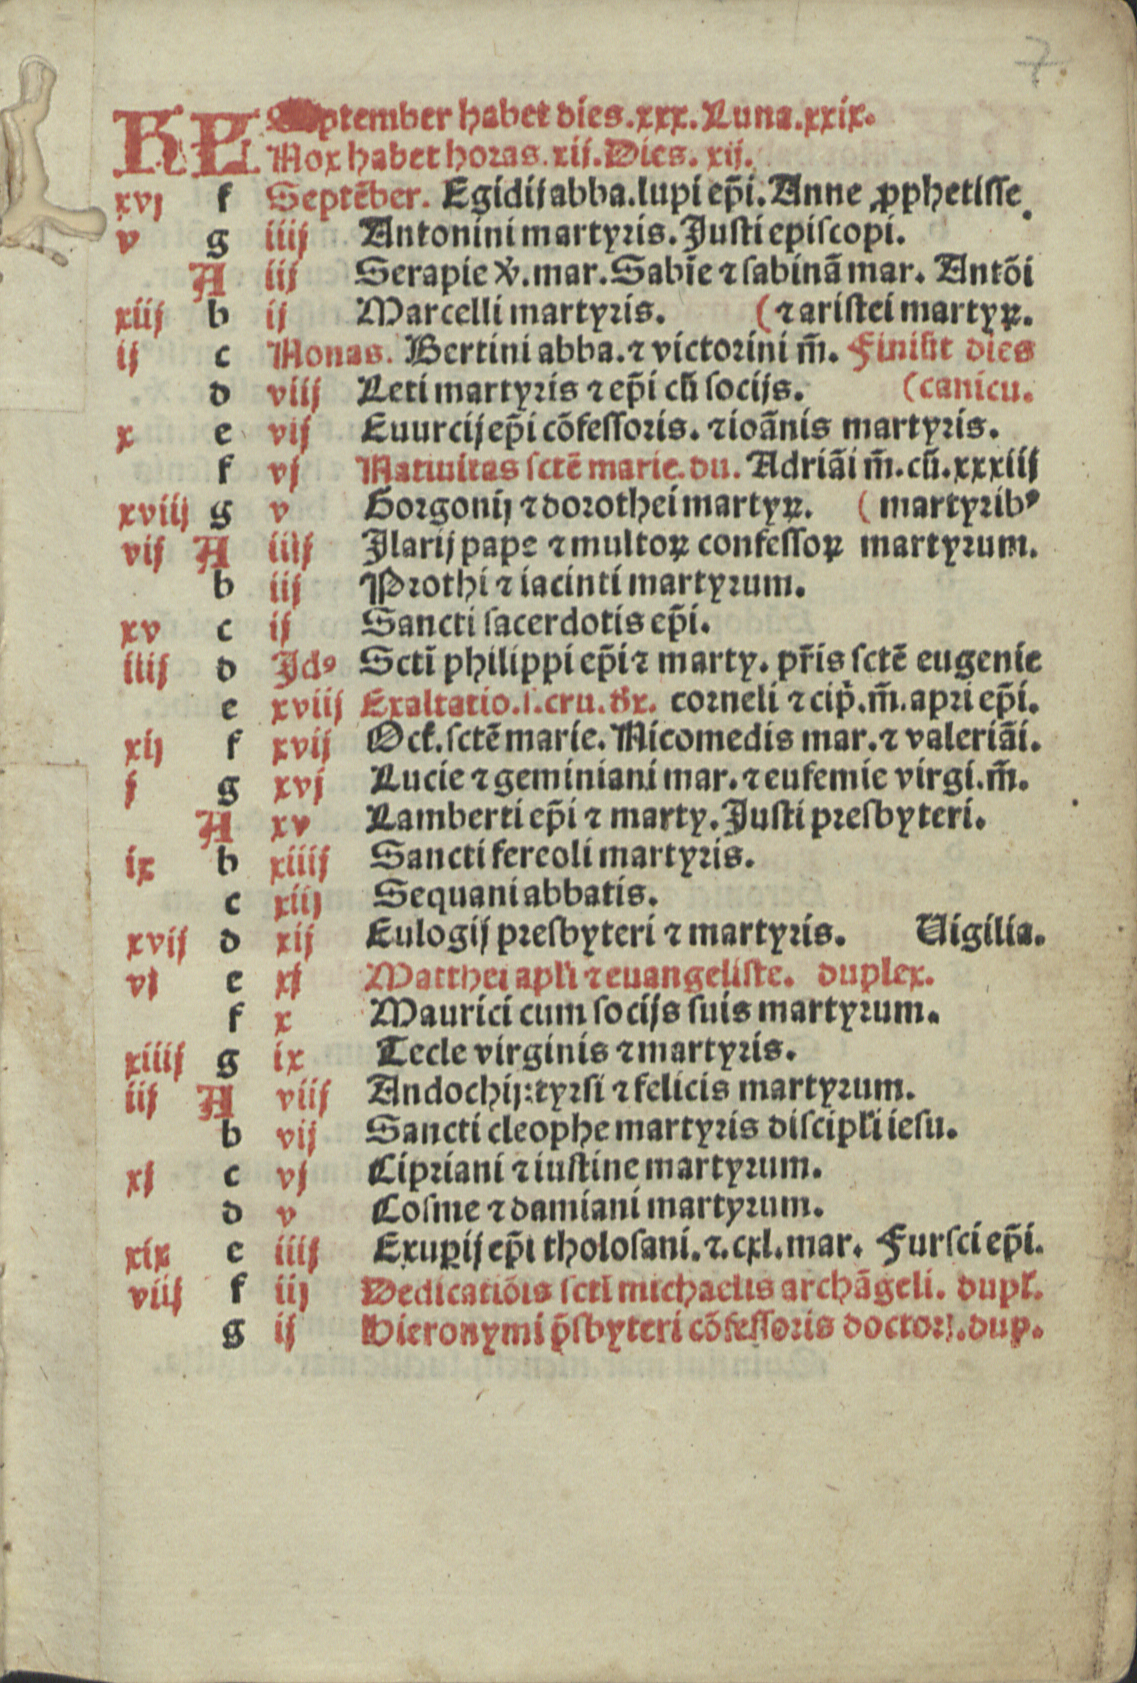 7.
KL September habet dies .xxx. Luna .xxix.
Nox habet horas .xij. Dies .xij.
xvj f Septēber. Egidij abba. lupi ep̄i. Anne ꝓphetisse
v g iiij Antonini martyris. Justi episcopi.
A iij Serapie v̄. mar. Sabīe ⁊ sabinā mar. Antōi
xiij b ij Marcelli martyris. (⁊ aristei martyꝝ.
ij c Nonas. Bertini abba. ⁊ victorini m̄. Finiūt dies
d viij Leti martyris ⁊ ep̄i cū socijs. (canicu.
x e vij Euurcij ep̄i cōfessoris. ⁊ ioānis martyris.
f vj Natiuitas sctē marie. du. Adriāi m̄. cū. xxxiij
xviij g v Gorgonij ⁊ dorothei martyꝝ. (martyribꝰ
vij A iiij Jlarij pape ⁊ multoꝝ confessoꝝ martyrum.
b iij Prothi ⁊ iacinti martyrum.
xv c ij Sancti sacerdotis ep̄i.
iiij d Jdꝰ Sctī philippi ep̄i ⁊ marty. pr̄is sctē eugenie
e xviij Exaltatio. s. cru. dx. corneli ⁊ cip̄. m̄. apri ep̄i.
xij f xvij Oct. sctē marie. Nicomedis mar. ⁊ valeriāi.
j g xvj Lucie ⁊ geminiani mar. ⁊ eufemie virgi. m̄.
A xv Lamberti ep̄i ⁊ marty. Justi presbyteri.
ix b xiiij Sancti fereoli martyris.
c xiij Sequani abbatis.
xvij d xij Eulogij presbyteri ⁊ martyris. Uigilia.
vj e xj Matthei apl'i ⁊ euangeliste. duplex.
f x Maurici cum socijs suis martyrum.
xiiij g ix Tecle virginis ⁊ martyris.
iij A viij Andochij: tyrsi ⁊ felicis martyrum.
b vij Sancti cleophe martyris discipl'i iesu.
xj c vj Cipriani ⁊ iustine martyrum.
d v Cosme ⁊ damiani martyrum.
xix e iiij Exuꝑij ep̄i tholosani. ⁊. cxl. mar. Fursci ep̄i.
viij f iij Dedicatiōis sctī michaelis archāgeli. dupl'.
g ij Hieronymi p̄sbyteri cōfessoris doctorꝭ. dup.